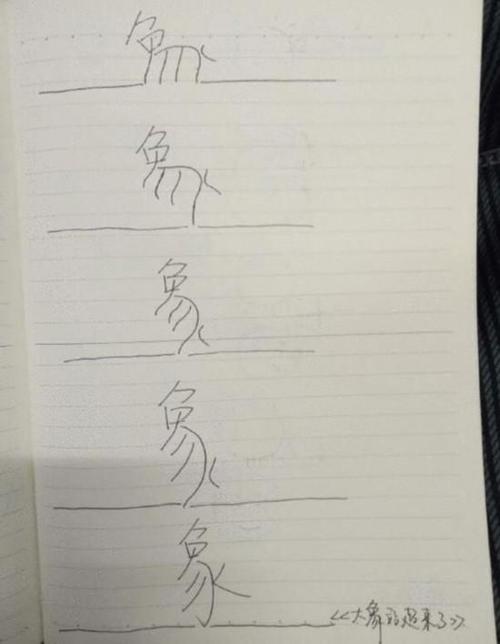 象
象
象
象
象
《大象站起来了》